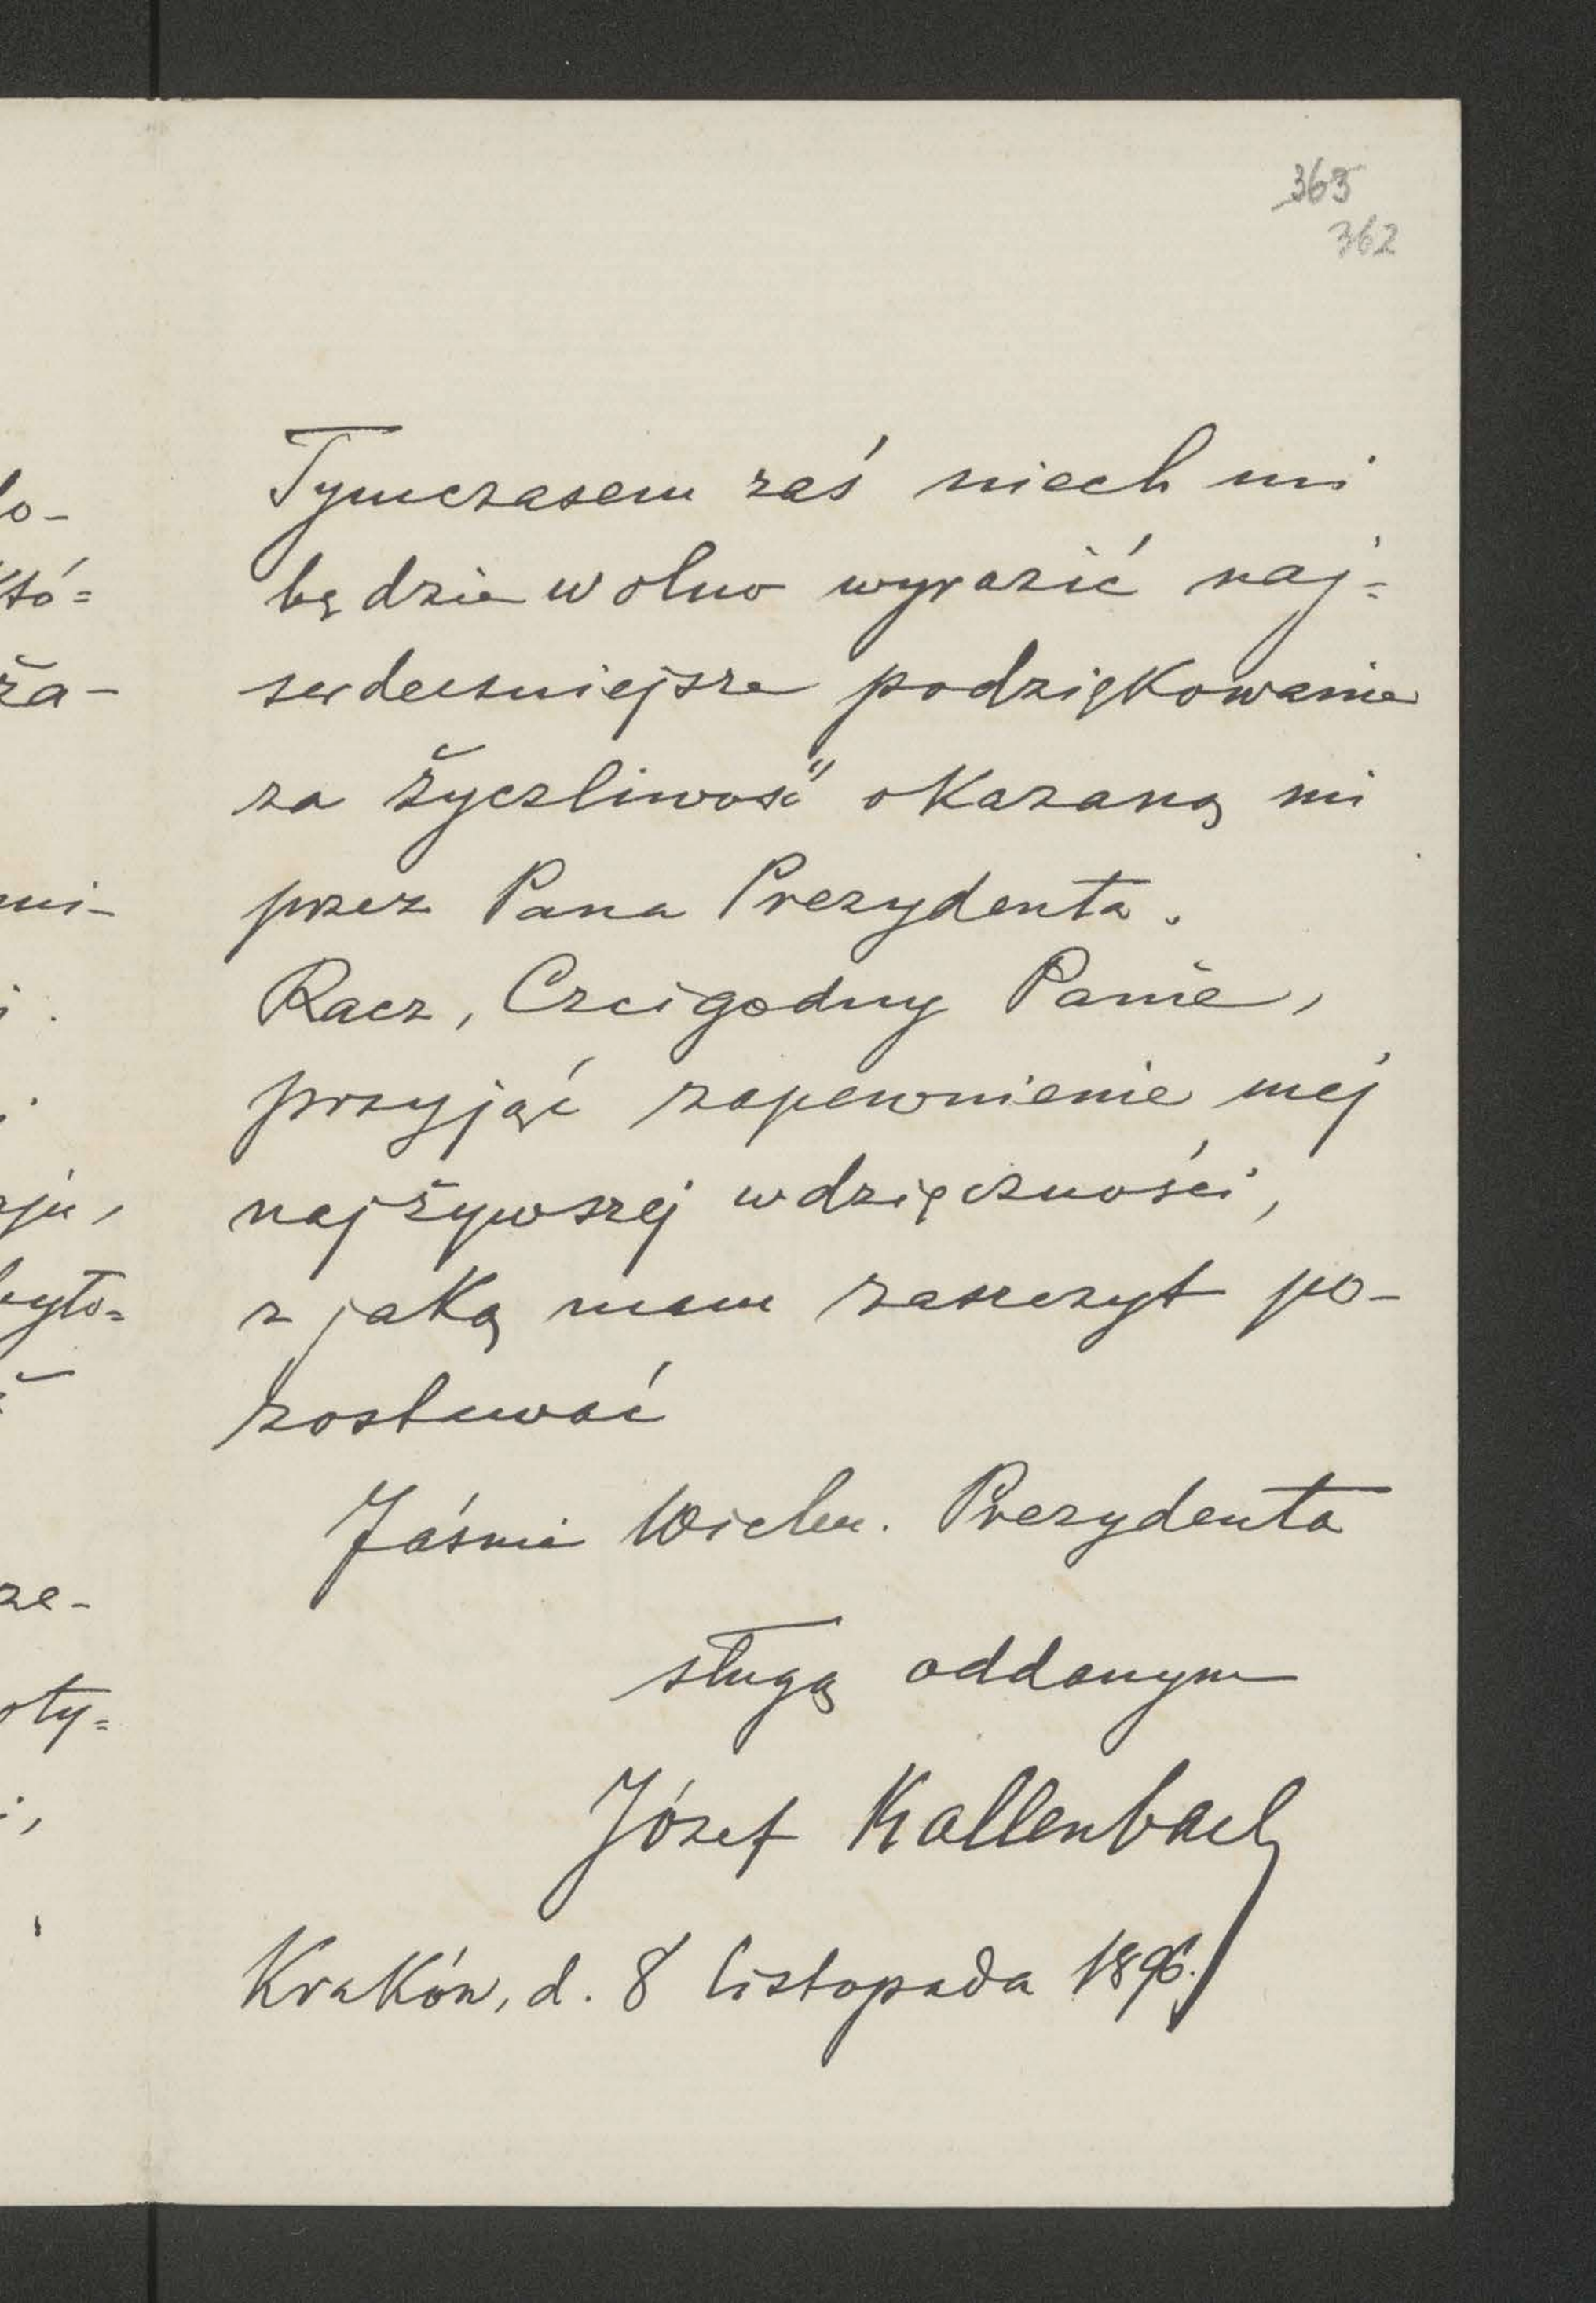 365
362
Tymczasem zaś niech mi
będzie wolno wyrazić naj=
serdeczniejsze podziękowanie
za życzliwość okazaną mi
przez Pana Prezydenta.
Racz, Czcigodny Panie,
przyjąć zapewnienie mej
najżywszej wdzięczności,
z jaką mam zaszczyt po-
zostawać
Jaśnie Wielm. Prezydenta
sługą oddanym
Józef Kallenbach
Kraków, d. 8 listopada 1896.